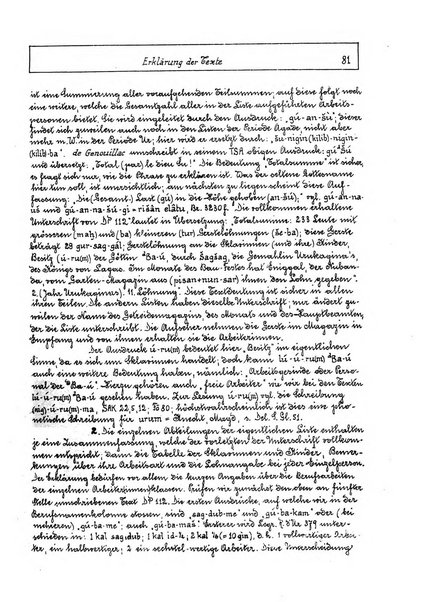 Erklärung der Texte 81
ist eine Summierung aller voraufgehenden Teilsummen, auf diese folgt noch
eine weitere, welche die Gesamtzahl aller in der Liste aufgeführten Arbeits-
personen bietet. Sie wird eingeleitet durch den Ausdruck: „gú-an-šú“; dieser
findet sich zuweilen auch noch in den Listen der Periode Agade, nicht aber
mehr m. W. in der Periode Ur, hier haben wir den Ausdruck: šu-nigin-
(kilib)-ba. de Genouillac umschreibt in seinem TSA obigen Ausdruck: gú
und übersetzt: „Total (par) le dieu Šu!“. Die Bedeutung „Totalsumme“ ist sicher,
es fragt sich nur, wie die Phrase zu erklären ist. Das der seltene Gottesname
hier tun soll, ist unersichtlich; am nächsten zu liegen scheint diese Auf-
fassung: „Die (Gesamt) Last (gú) in die Höhe gehoben (an-šú)“; vgl. gú-na
und gú-an-na-šú-gi = rîšân elâtu, Br. 3230 f. Die vollkommen erhaltene
Unterschrift von DP 112 lautet in Übersetzung: Totalsumme: 233 Leute mit
grösseren (maḫ) und kleineren (tur) Gerstelöhnungen (še-ba); diese Gerste
beträgt 23 gur-sag-gál; Gerstelöhnung an die Sklavinnen und (ihre) Kinder,
Besitz (ú-ru(m)) der Göttin Ba-ú, durch Šagšag, die Gemahlin Urukagina's,
des Königs von Lagaš. Im Monate des Bau-Festes hat Eniggal, der Nuban-
da, vom Garten-Magazin aus (pisan-nun-sar) ihnen den Lohn gegeben“.
2. (Jahr Urukaginas). 11. Löhnung“. Diese Textdeutung ist sicher in allen
ihren Teilen. Die andern Listen haben dieselbe Unterschrift; nur ändert
wieder der Name des Getreidemagazin, des Monats und des Hauptbeamten,
der die Liste unterschreibt. Die Aufseher nehmen die Gerste im Magazin in
Empfang und von ihnen erhalten sie die Arbeiterinnen.
Der Ausdruck ú-ru(m) bedeutet hier „Besitz“ im eigentlichen
Sinne, da es sich um Sklavinnen handelt; doch kann ú-ru(m) Ba-ú
auch eine weitere Bedeutung haben, nämlich „Arbeitsgesinde oder Perso-
nal der Ba-ú“. Hierzu gehören auch „freie Arbeiter“ wie wir bei den Texten
lú-ú-ru(m) sehen werden. Zur Lesung ú-ru(m) vgl. die Schreibung
(níg)-ú-ru(m)-ma, SAK 22,5,12; Fö 80; höchstwahrscheinlich ist dies eine pho-
netische Schreibung für urum = Knecht, Magd, s. Del. S. Gl. 51.
2. Die einzelnen Abteilungen der eigentlichen Liste enthalten
je eine Zusammenfassung, welche der vorletzten der Unterschrift vollkom-
men entspricht, dann die Tabelle der Sklavinnen und Kinder, Bemer-
kungen über ihre Arbeitsart und die Lohnangabe bei jeder Einzelperson.
Der Erklärung bedürfen vor allem die kurzen Angaben über die Berufsarten
der einzelnen Arbeiterinnenklassen. Prüfen wir zunächst den oben an fünfter
Stelle umschriebenen Text DP 112. Die ersten Ausdrücke, auf welche wir in der
Berufungenkolumne stossen, sind „sag-dub-me“ und „gú-ba-kam“ oder (bei
mehreren) „gú-ba-me“; auch „gú-ba-maš“. Ersterer wird Legr. T. d'Ur 379 unter-
schieden in: 1 kal sag-dub; 1 kal 1/2; 2 kal 1/6 (= 10 gin), d. h. 1 vollwertiger Arbei-
ter, ein halbwertiger; 2 ein sechstel-wertige Arbeiter. Diese Unterscheidung